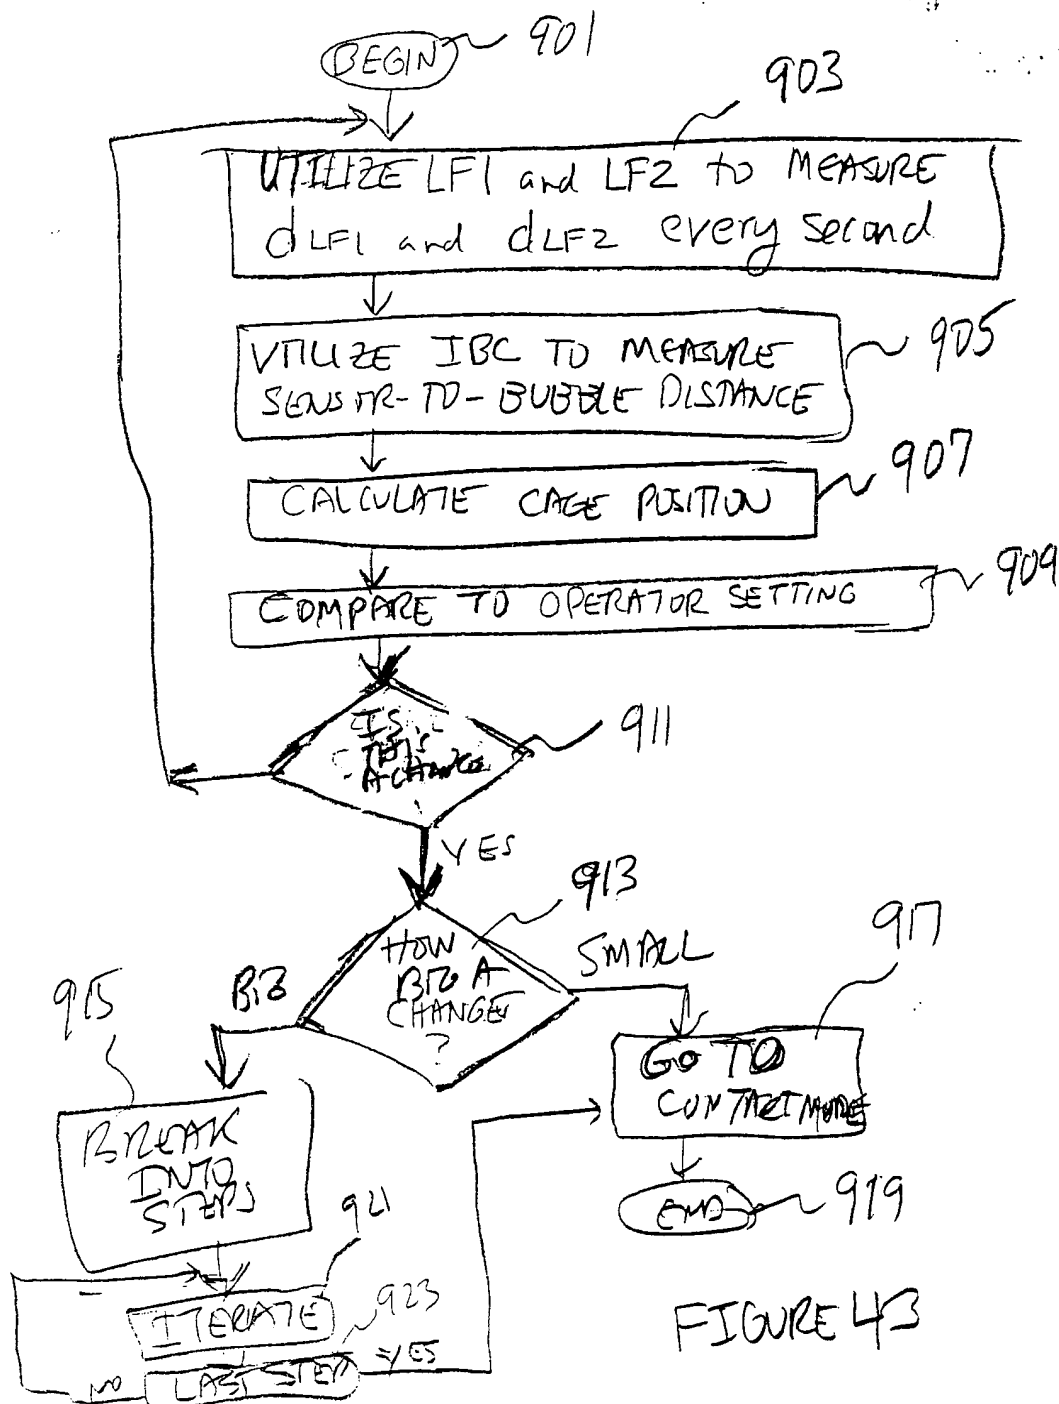 BEGIN 901
903
UTILIZE LF1 and LF2 to MEASURE
dLF1 and dLF2 every second
UTILIZE IBC TO MEASURE
SENSOR-TO-BUBBLE DISTANCE
905
CALCULATE CAGE POSITION
907
COMPARE TO OPERATOR SETTING
909
IS
THIS
A CHANGE
911
YES
913
HOW
BIG A
CHANGE
?
BIG
SMALL
915
917
BREAK
INTO
STEPS
GO TO
CONTACT MODE
END 919
921
ITERATE
923
LAST STEP
NO
YES
FIGURE 43